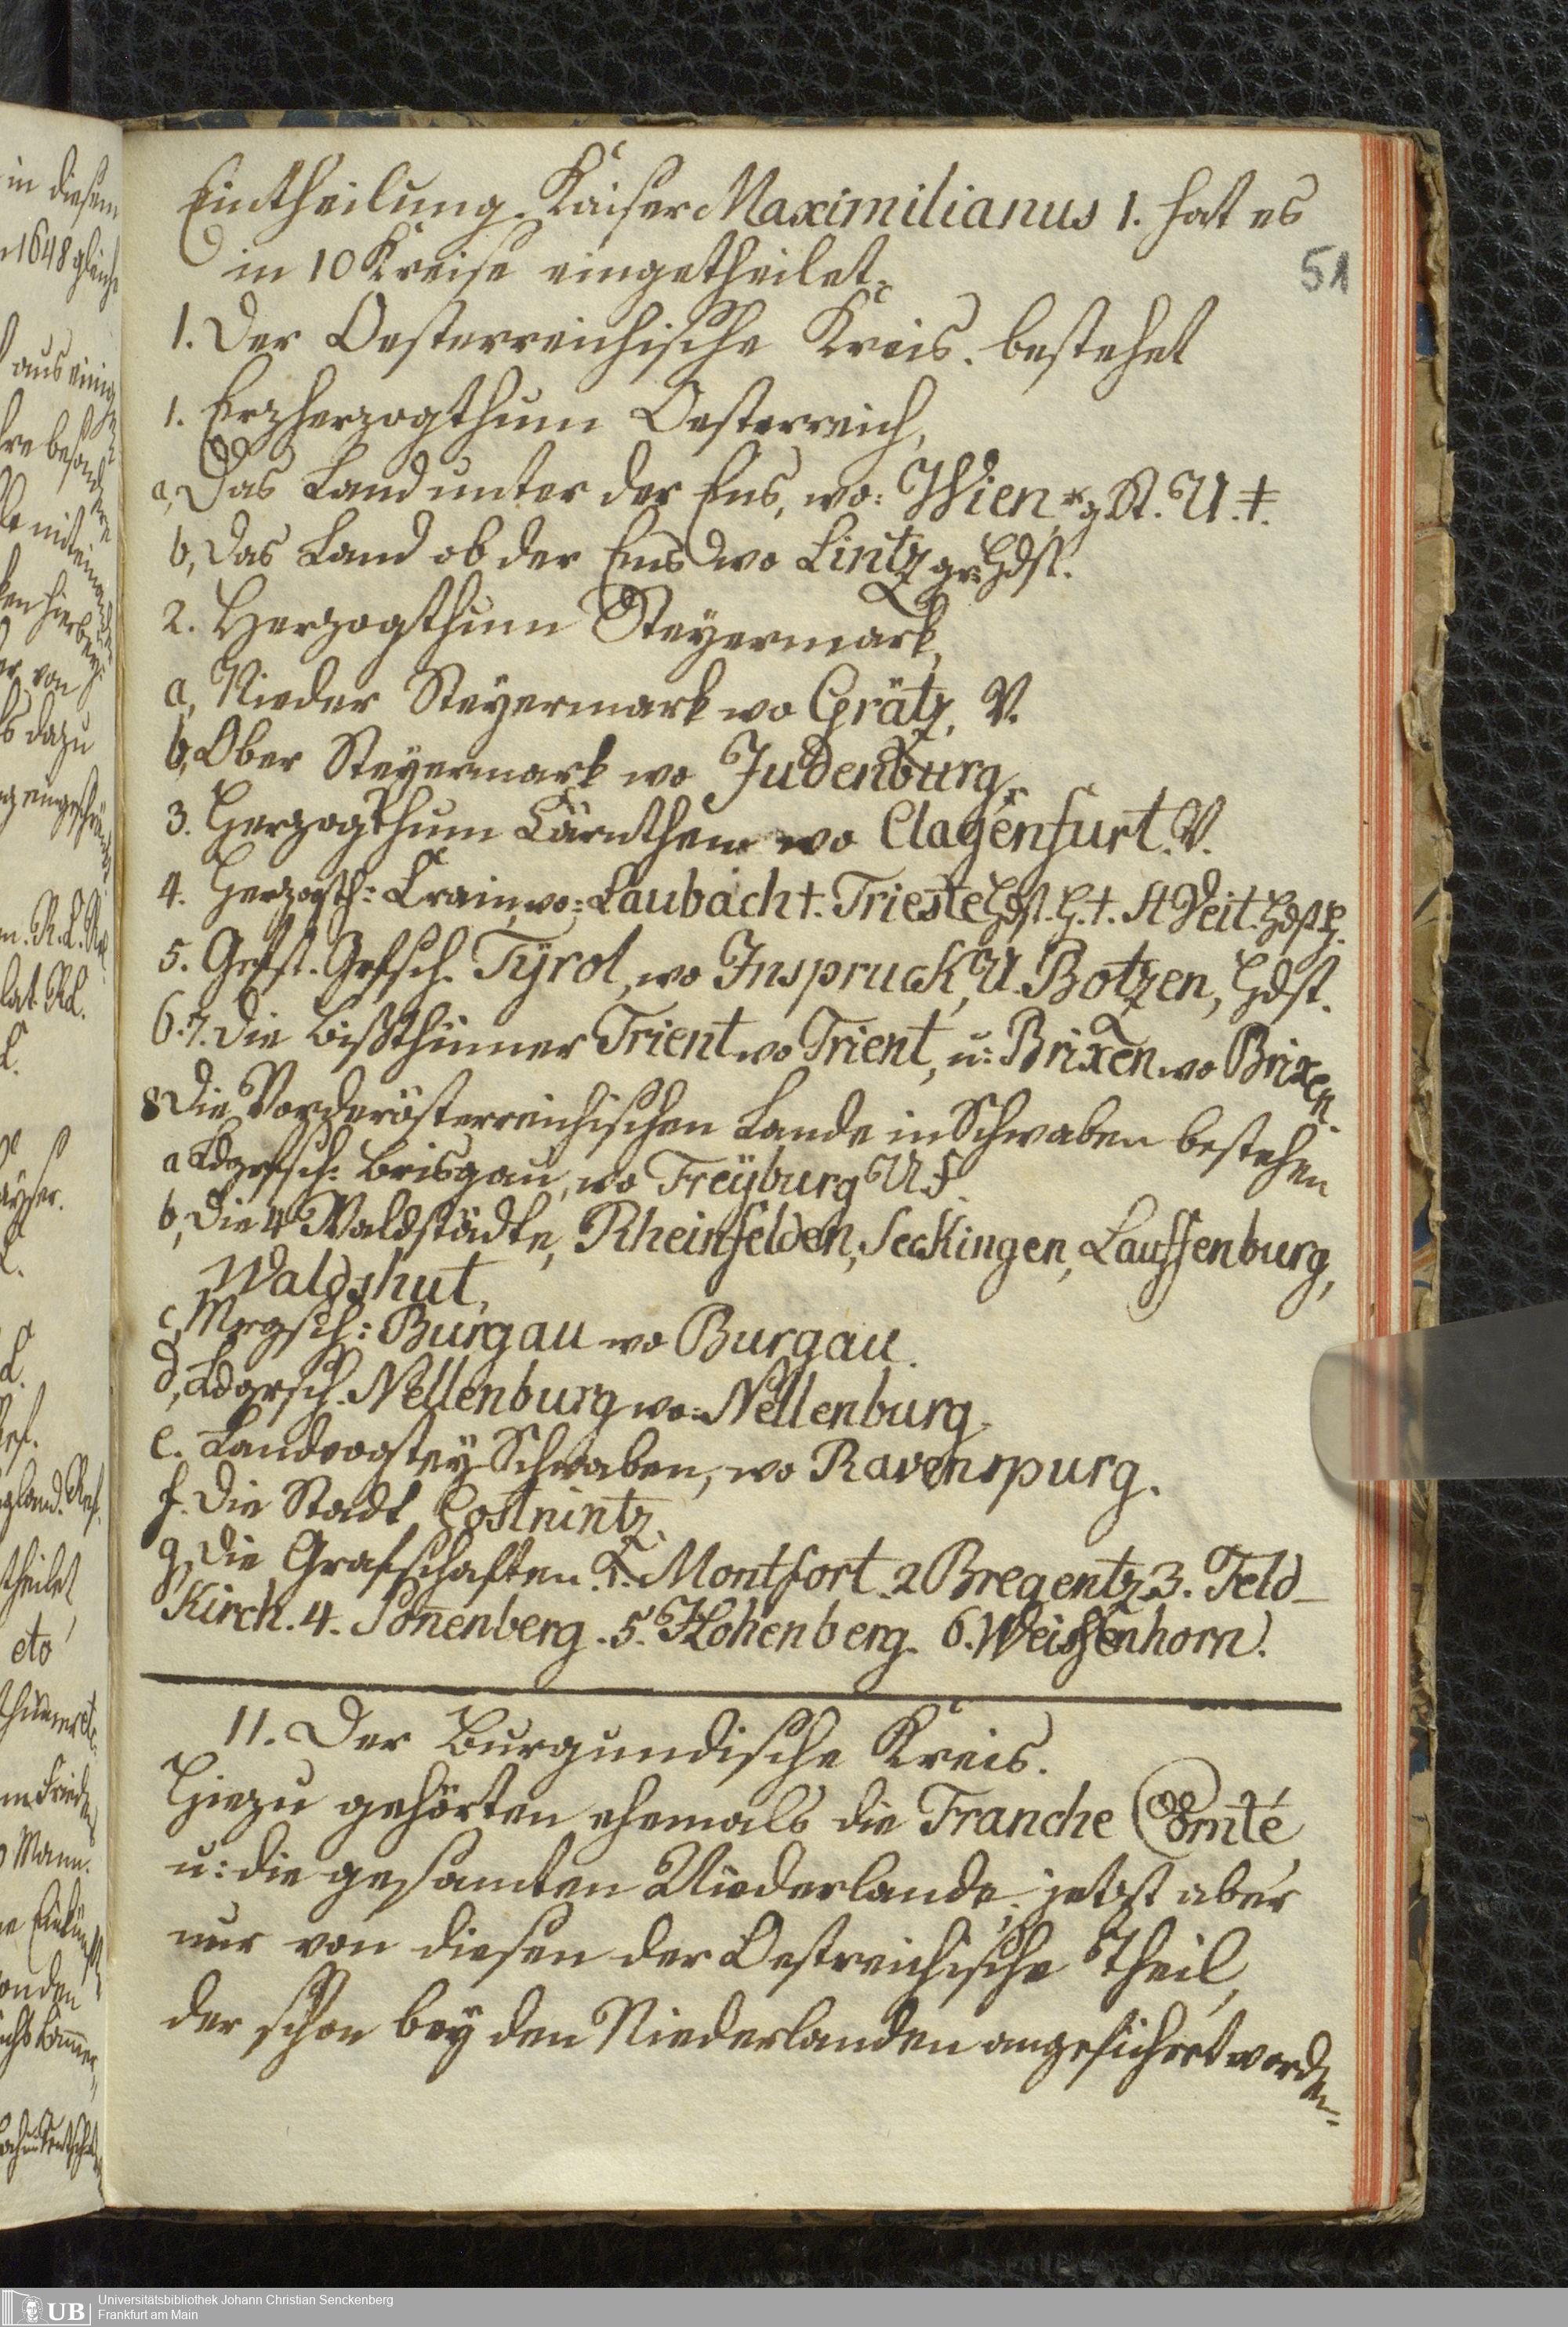 Eintheilung. Kaiser Maximilianus 1. hat es
in 10 Kreise eingetheilet.
51
1. Der Oesterreichische Kreis. bestehet
1. Erzherzogthum Oesterreich,
a, Das Land unter der Ens, wo: Wien, U. ‡.
b, Das Land ob der Ens wo Lintz gr: Hdst.
2. Herzogthum Steyermark,
a, Nieder Steyermark wo Grätz, V.
b, Ober Steyermark wo Judenburg,
3. Herzogthum Kärnthen wo Clagenfurt. V.
4. Herzogth: Krain, wo: Laubach †. Trieste Hdst. H. †. St Veit. Hdst H.
5. Gefst. Grfsch. Tÿrol, wo Inspruck, U. Botzen, Hdst.
6. 7. Die Bißthümer Trient wo Trient, u: Brixen wo Brixen.
8 Die Vorderösterreichischen Lande in Schwaben bestehen
a Ldgrfsch: Brisgau, wo Freÿburg U F.
b, Die 4 Waldstädte, Rheinfelden, Seckingen, Lauffenburg,
Waldshut,
c, Mrgsch: Burgau wo Burgau.
d, Ldgrsch. Nellenburg wo: Nellenburg.
e. Landvogtey Schwaben, wo Ravenspurg.
f. Die Stadt Costnintz.
g, Die Grafschaften. 1. Montfort. 2 Bregentz 3. Feld-
Kirch. 4. Soñenberg. 5. Hohenberg. 6. Weissenhorn.
11. Der Burgundische Kreis.
Hiezu gehörten ehemals die Franche Comté
u: die gesamten Niederlande, jetzt aber
nur von diesen der Oestreichische Theil,
der schon bey den Niederlanden angeführet worden.
in diesem
1648 gleich
aus einig
hre besondere
miteinander
hierbey
von
dazu
R. L.
theilet
etc
Mann.
UB
Universitätsbibliothek Johann Christian Senckenberg
Frankfurt am Main